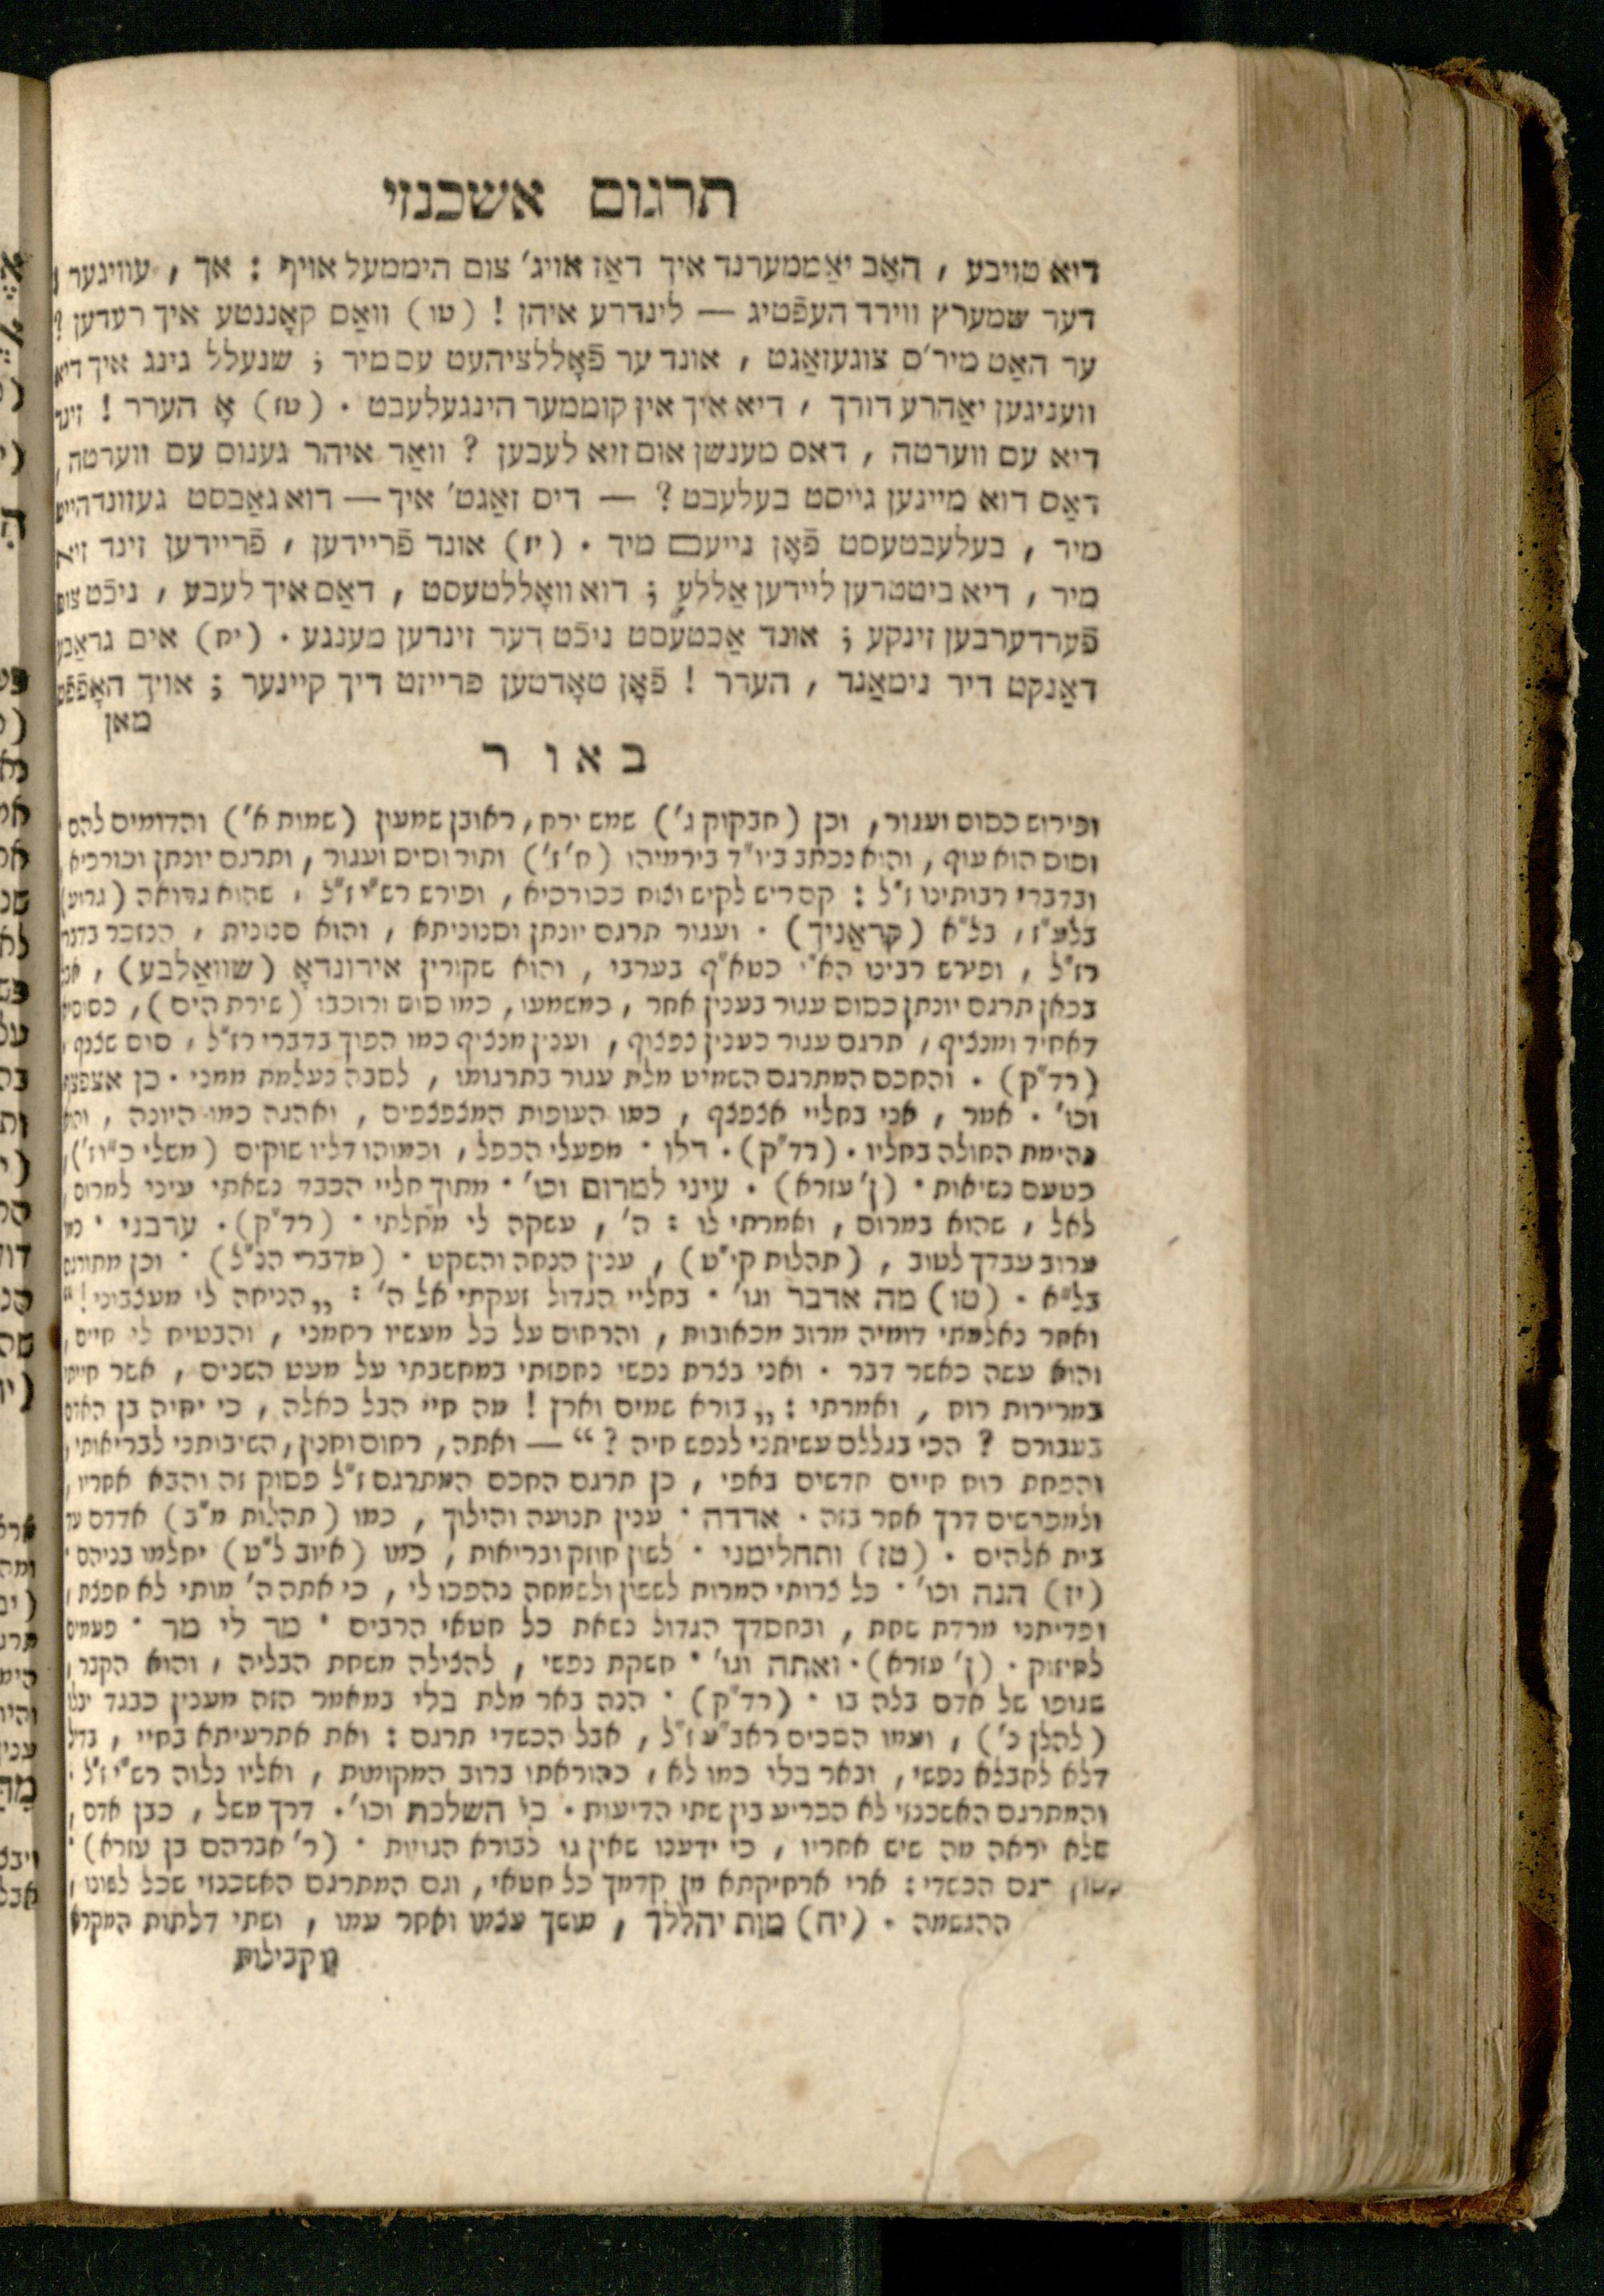 תרגום אשכנזי
דיא טויבע , האָב יאַממערנד איך דאַז אויג׳ צום היממעל אויף : אך , עוויגער
דער שמערץ ווירד העפֿטיג — לינדרע איהן ! (טו) וואַס קאָננטע איך רעדען ?
ער האַט מיר׳ס צוגעזאַגט , אונד ער פֿאָללציהעט עס מיר ; שנעלל גינג איך דיא
וועניגען יאַהרע דורך , דיא איך אין קוממער הינגעלעבט . (טז) אָ הערר ! זינד
דיא עס ווערטה , דאס מענשן אום זיא לעבען ? וואַר איהר גענוס עס ווערטה ,
דאַס דוא מיינען גייסט בעלעבט ? — דיס זאַגט׳ איך — דוא גאַבסט געזונדהייט
מיר , בעלעבטעסט פֿאָן נייעם מיך . (יז) אונד פֿריידען , פֿריידען זינד זיא
מיר , דיא ביטטרען ליידען אַללע ; דוא וואָללטעסט , דאַס איך לעבע , ניכֿט צום
פֿערדערבען זינקע ; אונד אַכטעסט ניכֿט דער זינדען מענגע . (יח) אים גראַבע
דאַנקט דיר ניטאַנד , הערר ! פֿאָן טאָדטען פרייזט דיך קיינער ; אויך האָפֿפֿט
מאן
באור
ופירוש כסוס ועגור, וכן (חבקוק ג׳) שמש ירח, ראובן שמעון (שמות א׳) והדומים להם
וסוס הוא עוף, והוא נכתב ביו״ד בירמיהו (ח׳ ז׳) ותור וסיס ועגור, ותרגם יונתן וכורכיא,
ובדברי רבותינו ז״ל : קם ריש לקיש וצוח ככורכיא, ופירש רש״י ז״ל , שהוא גרואה (גרוע)
בלע״ז, בל״א (קראַניך) . ועגור תרגם יונתן וסנוניתא , והוא סנונית , הנזכר בדברי
רז״ל , ופירש רבינו הא״י כטא״ף בערבי , והוא שקורין אירונדאָ (שוואַלבע) ,
בכאן תרגם יונתן כסוס עגור בענין אחר , כמשמעו, כמו סוס ורוכבו (שירת הים) , כסוסיא
דאחיד ומנציף, תרגם עגור כענין נפצוף, וענין מנציף כמו הפוך בדברי רז״ל , סוס שצנף,
(רד״ק) . והחכם המתרגם השמיט מלת עגור בתרגומו , לסבה נעלמת ממני . כן אצפצף
וכו׳ . אמר , אני בחליי אצפצף , כמו העופות המצפצפים , ואהגה כמו היונה , והוא
נהימת החולה בחליו . (רד״ק) . דלו . מפעלי הכפל , וכמוהו דליו שוקים (משלי כ״ו ז׳),
כטעם נשיאות . (ן׳ עזרא) . עיני למרום וכו׳ . מתוך חליי הכבד נשאתי עיני למרום,
לאל , שהוא במרום , ואמרתי לו : ה׳ , עשקה לי מחלתי . (רד״ק) . ערבני . כמו
ערוב עבדך לטוב , (תהלות קי״ט) , ענין הנחה והשקט . (מדברי הנ״ל) . וכן מתורגם
בל״א . (טו) מה אדבר וגו׳ . בחליי הגדול זעקתי אל ה׳ : „הניחה לי מעצבוני!“
ואחר נאלמתי דומיה מרוב מכאובות , והרחום על כל מעשיו רחמני , והבטיח לי חיים,
והוא עשה כאשר דבר . ואני בצרת נפשי נחפזתי במחשבתי על מעט השנים , אשר חייתי
במרירות רוח , ואמרתי : „בורא שמים וארץ ! מה חיי הבל כאלה , כי יחיה בן האדם
בעבורם ? הכי בגללם עשיתני לנפש חיה ?“ — ואתה , רחום וחנון , השיבותני לבריאותי,
והפחת רוח חיים חדשים באפי , כן תרגם החכם המתרגם ז״ל פסוק זה והבא אחריו,
ולמפרשים דרך אחר בזה . אדדה . ענין תנועה והילוך , כמו (תהלות מ״ב) אדדם עד
בית אלהים . (טז) ותחלימני . לשון חוזק ובריאות , כמו (איוב ל״ט) יחלמו בניהם .
(יז) הנה וכו׳ . כל צרותי המרות לששון ולשמחה נהפכו לי , כי אתה ה׳ מותי לא חפצת ,
ופדיתני מרדת שחת , ובחסדך הגדול נשאת כל חטאי הרבים . מר לי מר . פעמים
לחיזוק . (ן׳ עזרא) . ואתה וגו׳ . חשקת נפשי , להצילה משחת הבליה , והוא הקבר,
שגופו של אדם בלה בו . (רד״ק) . הנה באר מלת בלי במאמר הזה מענין כבגד יבלו
(להלן נ׳) , ועמו הסכים ראב״ע ז״ל , אבל הכשדי תרגם : ואת אתרעיתא בחיי , בדיל
דלא לחבלא נפשי, ובאר בלי כמו לא , כהוראתו ברוב המקומות , ואליו נלוה רש״י ז״ל .
והמתרגם האשכנזי לא הכריע בין שתי הדיעות . כי השלכת וכו׳ . דרך משל , כבן אדם,
שלא יראה מה שיש אחריו , כי ידענו שאין גו לבורא הגויות . (ר׳ אברהם בן עזרא) .
רגם הכשדי : ארי ארחיקתא מן קדמך כל חטאי , וגם המתרגם האשכנזי שכל לשונו ,
ההגשמה . (יח) מות יהללך , מושך עצמו ואחר עמו , ושתי דלתות המקרא
מקבילות